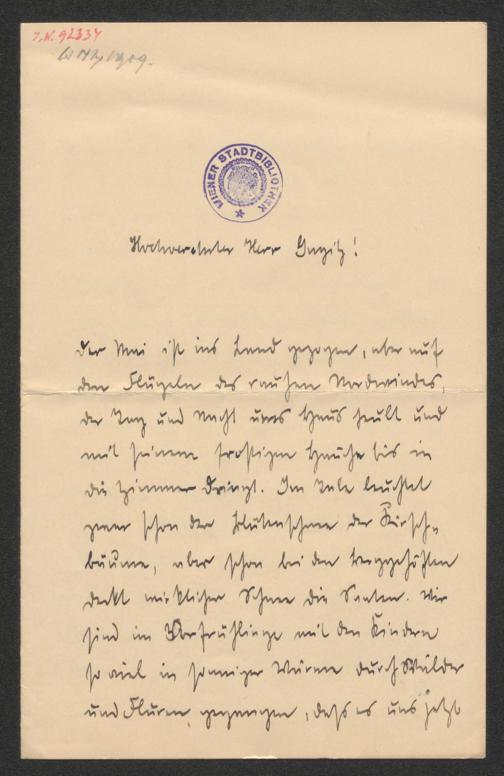 J.N. 92334
WIENER STADTBIBLIOTHEK
Hochverehrter Herr Gugitz!
Der Mai ist ins Land gezogen, aber auf
den Flügeln des rauhen Nordwindes,
der Tag und Nacht ums Haus heult und
mit seinem frostigen Hauche bis in
die Zimmer dringt. Im Tale leuchtet
zwar schon der Blütenschnee der Kirsch-
bäume, aber schon bei den Berggehöften
deckt wirklicher Schnee die Saaten. Wir
sind im Vorfrühlinge mit den Kindern
so viel in sonniger Wärme durch Wälder
und Fluren gegangen, dass es uns jetzt